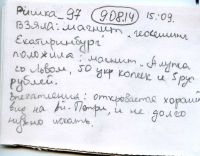 Ришка_97 90814 15.09.
взяла: магнит, геокешинг
Екатиринбург
положила: магнит - Алупка
со львом, 50 укр копеек и 5 рус
рублей.
Впечатления: открывается хороший
вид на Ай-Петри, и не долго
нужно искать.